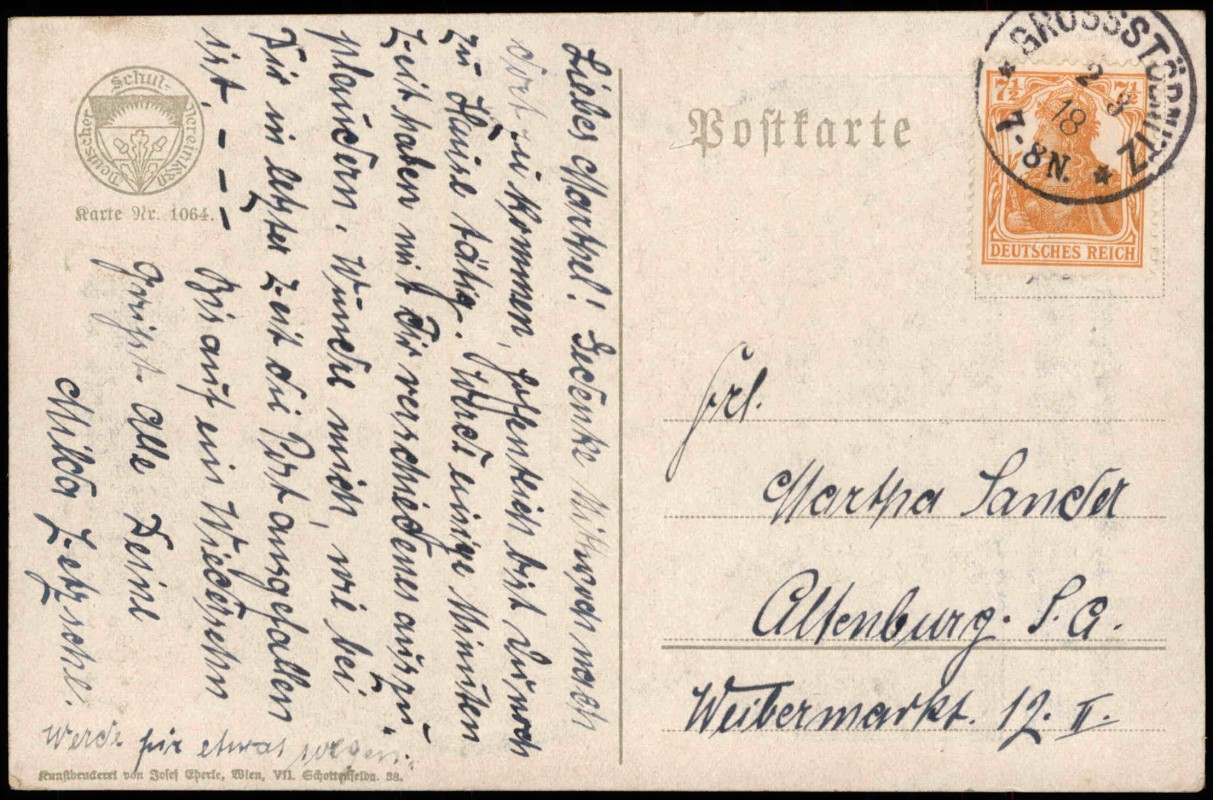 Deutscher Schulverein 1880
Karte Nr. 1064.
Postkarte
GROSSSTÖBNITZ
2 3
18
7-8N.
7½ 7½
DEUTSCHES REICH
Liebes Marthel! Gedenke Mittwoch nach
dort zu kommen, hoffentlich bist Du noch
zu Hause tätig. Werde einige Minuten
Zeit haben mit Dir verschiedenes auszu
plaudern. Wünsche mich, wie bei
Dir in letzter Zeit die Post ausgefallen
ist. - - -
Bis auf ein Wiedersehn
grüßt alle Deine
Milda Zetzsche.
Werde für etwas sorgen.
Frl.
Martha Sander
Altenburg. S. A.
Weibermarkt. 12. II.
Kunstdruckerei von Josef Eberle, Wien, VII. Schottenfeldg. 38.